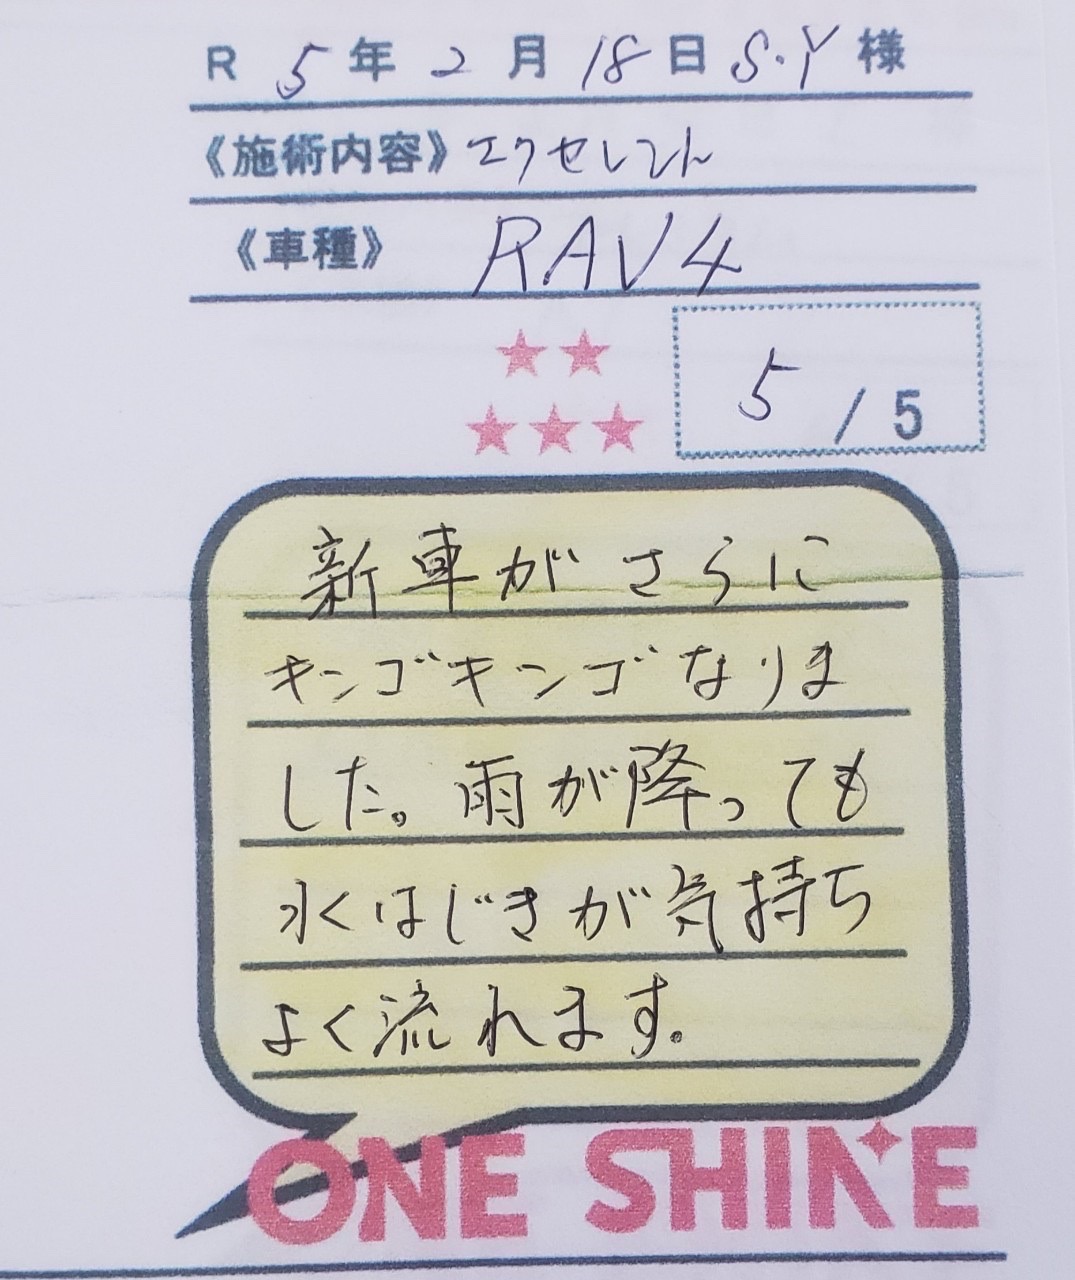 R 5年 2月 18日 S.Y 様
《施術内容》エクセレント
《車種》 RAV4
5 / 5
新車がさらに
キンゴキンゴなりま
した。雨が降っても
水くはじきが気持ち
よく流れます。
ONE SHINE